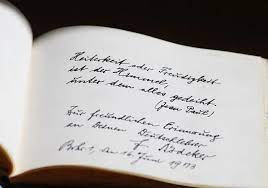 Heiterkeit oder Freudigkeit
ist der Himmel,
unter dem alles gedeiht.
(Jean Paul)
Zur freundlichen Erinnerung
an Deinen
F. Rödeker
10. Juni 1973